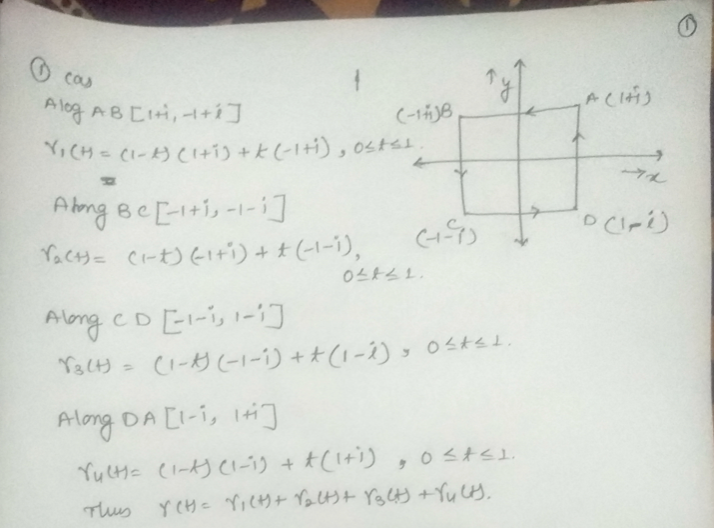 ①
① cas
Alog AB [1+i, -1+i]
γ₁(t) = (1-t)(1+i) + t(-1+i), 0≤t≤1.
Along BC [-1+i, -1-i]
γ₂(t) = (1-t)(-1+i) + t(-1-i),
0≤t≤1.
Along CD [-1-i, 1-i]
γ₃(t) = (1-t)(-1-i) + t(1-i), 0≤t≤1.
Along DA [1-i, 1+i]
γ₄(t) = (1-t)(1-i) + t(1+i), 0≤t≤1.
Thus γ(t) = γ₁(t) + γ₂(t) + γ₃(t) + γ₄(t).
↑y
A (1+i)
(-1+i)B
→x
C
(-1-i)
D (1-i)